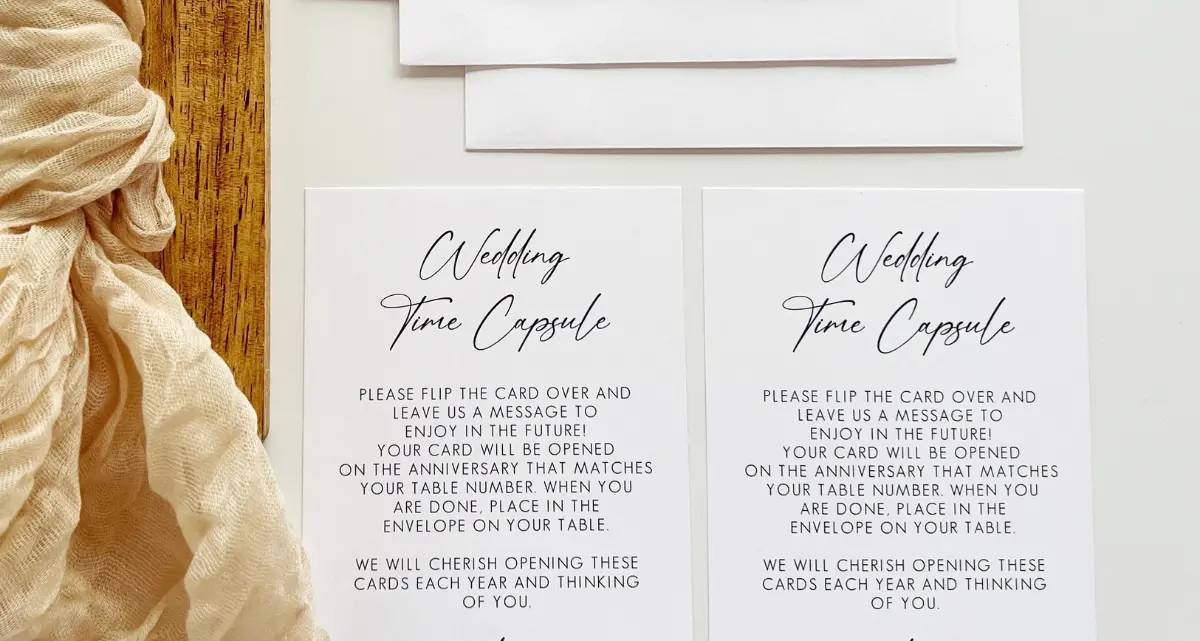 Wedding
Time Capsule
PLEASE FLIP THE CARD OVER AND
LEAVE US A MESSAGE TO
ENJOY IN THE FUTURE!
YOUR CARD WILL BE OPENED
ON THE ANNIVERSARY THAT MATCHES
YOUR TABLE NUMBER. WHEN YOU
ARE DONE, PLACE IN THE
ENVELOPE ON YOUR TABLE.
WE WILL CHERISH OPENING THESE
CARDS EACH YEAR AND THINKING
OF YOU.
Wedding
Time Capsule
PLEASE FLIP THE CARD OVER AND
LEAVE US A MESSAGE TO
ENJOY IN THE FUTURE!
YOUR CARD WILL BE OPENED
ON THE ANNIVERSARY THAT MATCHES
YOUR TABLE NUMBER. WHEN YOU
ARE DONE, PLACE IN THE
ENVELOPE ON YOUR TABLE.
WE WILL CHERISH OPENING THESE
CARDS EACH YEAR AND THINKING
OF YOU.